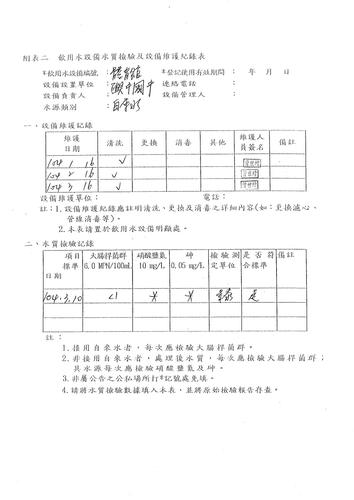 附表二 飲用水設備水質檢驗及設備維護紀錄表
*飲用水設備編號：體育館 *登記使用有效期間： 年 月 日
設備設置單位： 國中 連絡電話：
設備負責人： 設備管理人：
水源類別：自來水
一、設備維護記錄
維護日期 清洗 更換 消毒 其他 維護人員簽名 備註
104 1 16 ✓
104 2 16 ✓
104 3 16 ✓
設備維護單位： 電話：
註：1.設備維護紀錄應註明清洗、更換及消毒之詳細內容(如：更換濾心、
管線消毒等)。
2.本表請置於飲用水設備明顯處。
二、水質檢驗記錄
項目 大腸桿菌群 硝酸鹽氮 砷 檢驗測定單位 是否符合標準 備註
標準 6.0 MPN/100mL 10 mg/L 0.05 mg/L
日期
104.3.10 <1 * * 是
註：
1.接用自來水者，每次應檢驗大腸桿菌群。
2.非接用自來水者，處理後水質，每次應檢驗大腸桿菌群；
其水源每次應檢驗硝酸鹽氮及砷。
3.非屬公告之公私場所打*記號處免填。
4.請將水質檢驗數據填入本表，並將原始檢驗報告存查。